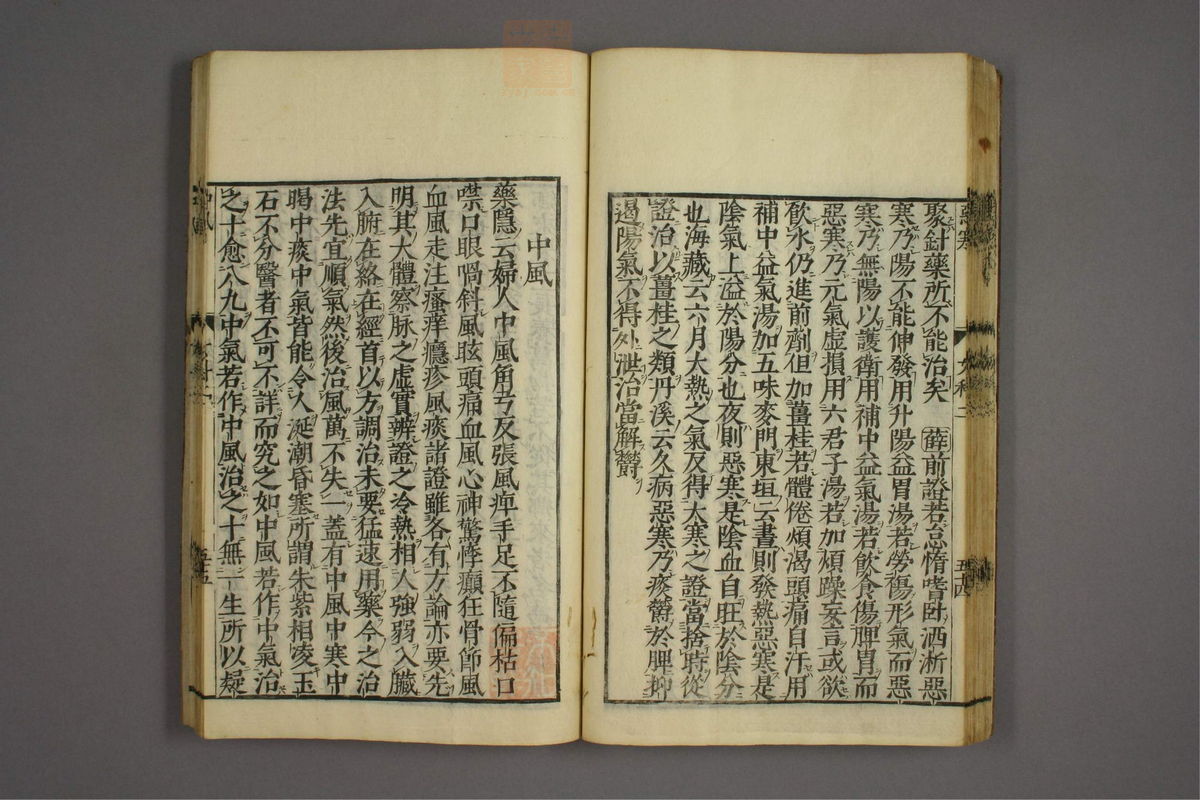 聚針藥所不能治矣 薛前證若怠惰嗜卧洒淅惡
寒乃陽不能伸發用升陽益胃湯若勞傷形氣而惡
寒乃無陽以護衛用補中益氣湯若飲食傷脾胃而
惡寒乃元氣虛損用六君子湯若加煩躁妄言或欲
飲水仍進前劑但加薑桂若體倦煩渴頭痛自汗用
補中益氣湯加五味麥門東垣云晝則發熱惡寒是
陰氣上溢於陽分也夜則惡寒是陰血自旺於陰分
也海藏云六月大熱之氣反得大寒之證當捨時從
證治以薑桂之類丹溪云久病惡寒乃痰鬱於脾抑
遏陽氣不得外泄治當解鬱
惡寒
女科二
五十四
中風
藥隱云婦人中風角弓反張風痺手足不隨偏枯口
噤口眼喎斜風眩頭痛血風心神驚悸癲狂骨節風
血風走注瘙痒癮疹風痰諸證雖各有方論亦要先
明其大體察脉之虛實辨證之冷熱相人強弱入臟
入腑在絡在經首以方調治未要猛速用藥今之治
法先宜順氣然後治風萬不失一蓋有中風中寒中
暍中痰中氣皆能令人涎潮昏塞所謂朱紫相凌玉
石不分醫者不可不詳而究之如中風若作中氣治
之十愈八九中氣若作中風治之十無一生所以疑
中風
五十五